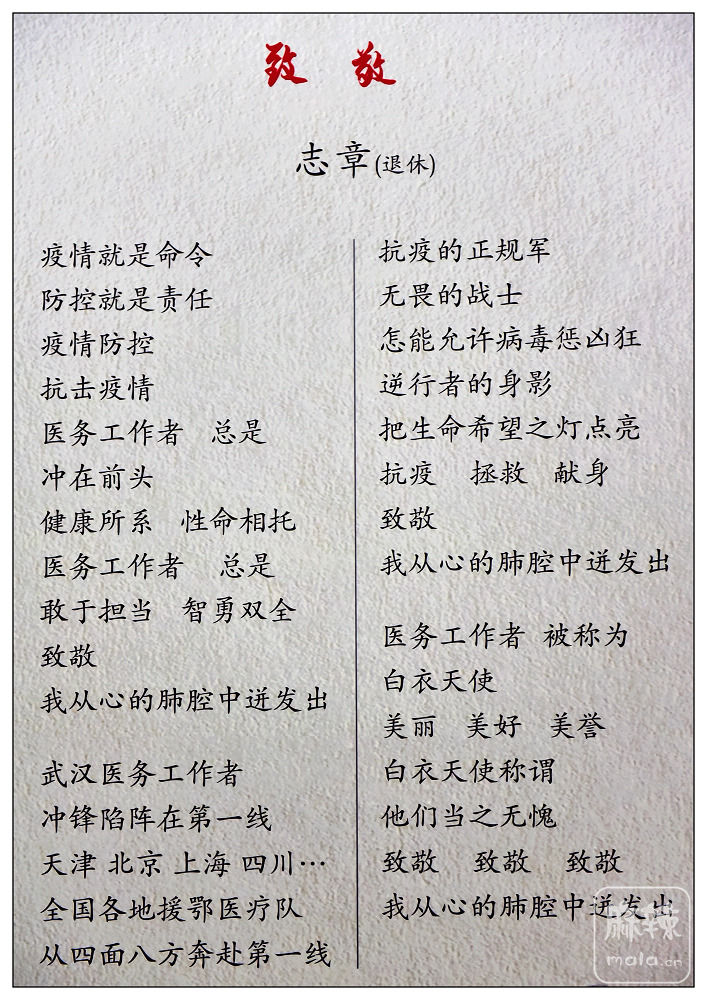 致 敬
志章(退休)
疫情就是命令
防控就是责任
疫情防控
抗击疫情
医务工作者 总是
冲在前头
健康所系 性命相托
医务工作者 总是
敢于担当 智勇双全
致敬
我从心的肺腔中迸发出
武汉医务工作者
冲锋陷阵在第一线
天津 北京 上海 四川…
全国各地援鄂医疗队
从四面八方奔赴第一线
抗疫的正规军
无畏的战士
怎能允许病毒惩凶狂
逆行者的身影
把生命希望之灯点亮
抗疫 拯救 献身
致敬
我从心的肺腔中迸发出
医务工作者 被称为
白衣天使
美丽 美好 美誉
白衣天使称谓
他们当之无愧
致敬 致敬 致敬
我从心的肺腔中迸发出
麻辣
mala.cn